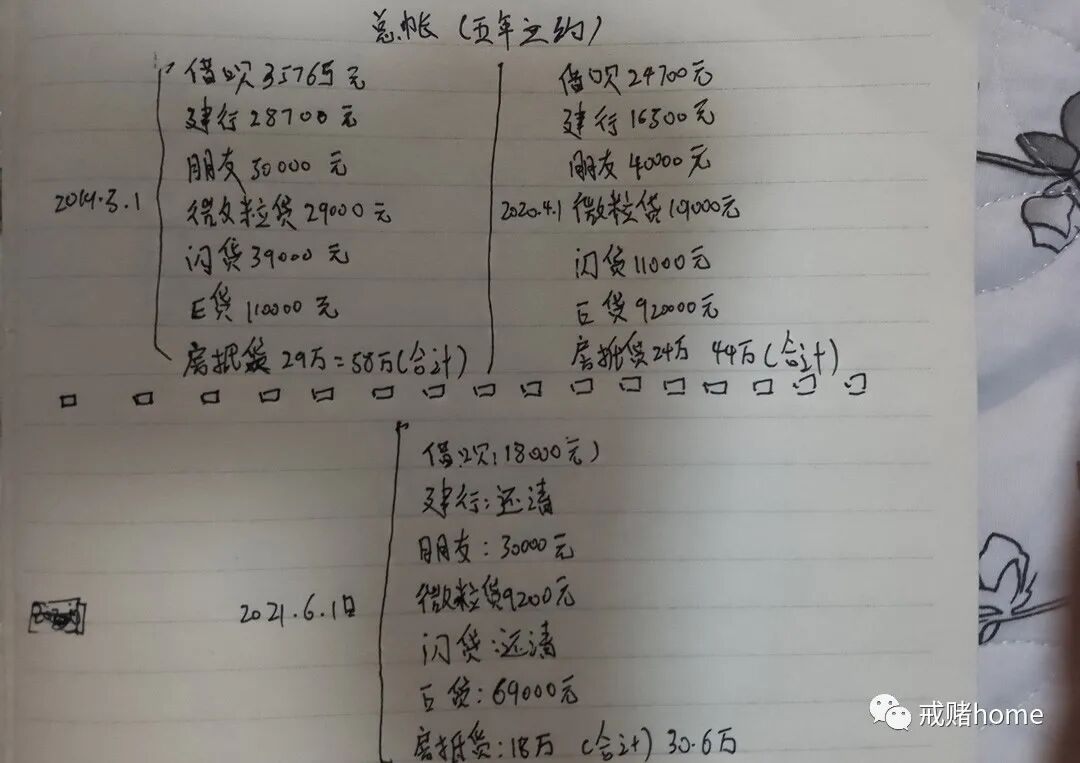 总帐(五年之约)
借呗35765元
建行28700元
朋友50000元
2019.3.1
微粒贷29000元
闪贷39000元
E贷110000元
房抵贷29万=58万(合计)
借呗24700元
建行16500元
朋友40000元
2020.4.1 微粒贷19000元
闪贷11000元
E贷920000元
房抵贷24万 44万(合计)
借呗:18000元)
建行:还清
朋友:30000元
2021.6.1日
微粒贷9200元
闪贷:还清
E贷:69000元
房抵贷:18万 (合计) 30.6万
戒赌home